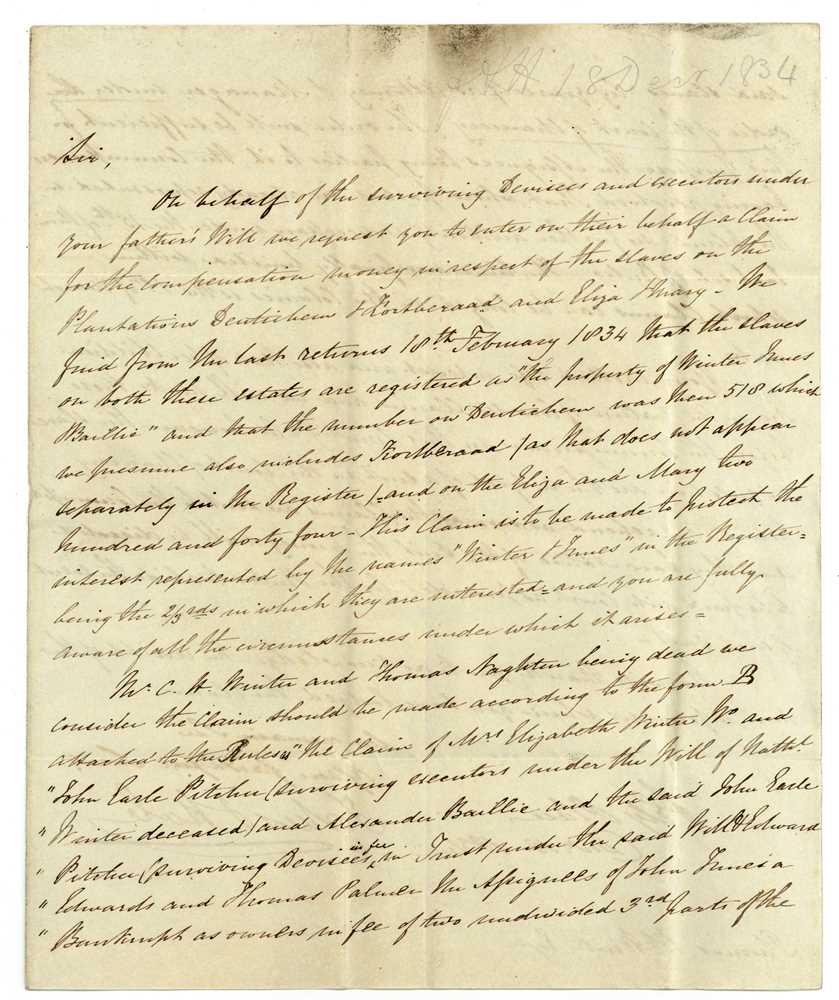 18 Decr 1834
Sir,
On behalf of the surviving Devisees and executors under
your father's Will we request you to enter on their behalf a Claim
for the Compensation money in respect of the slaves on the
Plantations Deutichem & Kortberaad and Eliza & Mary - We
find from the last returns 18th February 1834 that the slaves
on both these estates are registered as "the property of Winter Innes
& Baillie" and that the number on Deutichem was then 518 which
we presume also includes Kortberaad (as that does not appear
separately in the Register) - and on the Eliza and Mary two
hundred and forty four - This Claim is to be made to protect the
interest represented by the names "Winter & Innes" in the Register =
being the 2/3rds in which they are interested = and you are fully
aware of all the circumstances under which it arises =
Mr. C. H. Winter and Thomas Naghten being dead we
consider the Claim should be made according to the form B
attached to the Rules as "the Claim of Mrs Elizabeth Winter Wo. and
" John Earle Pitcher (surviving executors under the Will of Nathl.
" Winter deceased) and Alexander Baillie and the said John Earle
" Pitcher (surviving Devisees in fee in Trust under the said Will) & Edward
" Edwards and Thomas Palmer the Assignees of John Innes a
" Bankrupt as owners in fee of two undivided 3rd parts of the